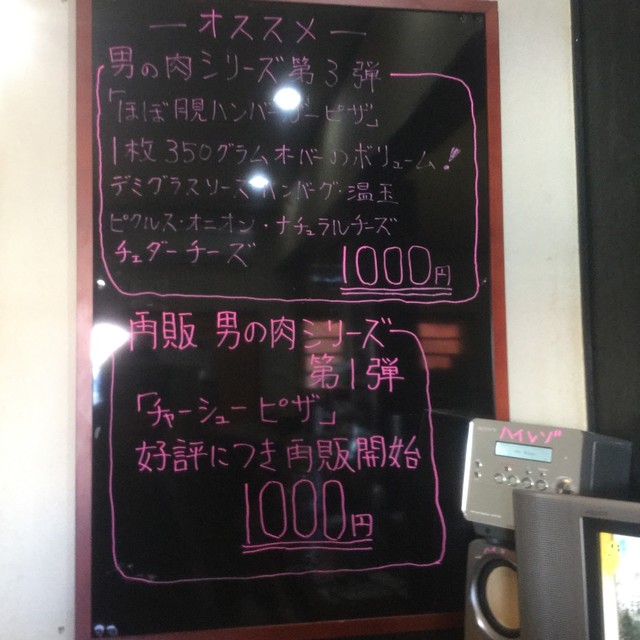 オススメ
男の肉シリーズ第3弾
「ほぼ月見ハンバーガーピザ」
1枚350グラムオーバーのボリューム!
デミグラスソース・ハンバーグ・温玉
ピクルス・オニオン・ナチュラルチーズ
チェダーチーズ 1000円
再販 男の肉シリーズ
第1弾
「チャーシューピザ」
好評につき再販開始
1000円
ハイレゾ